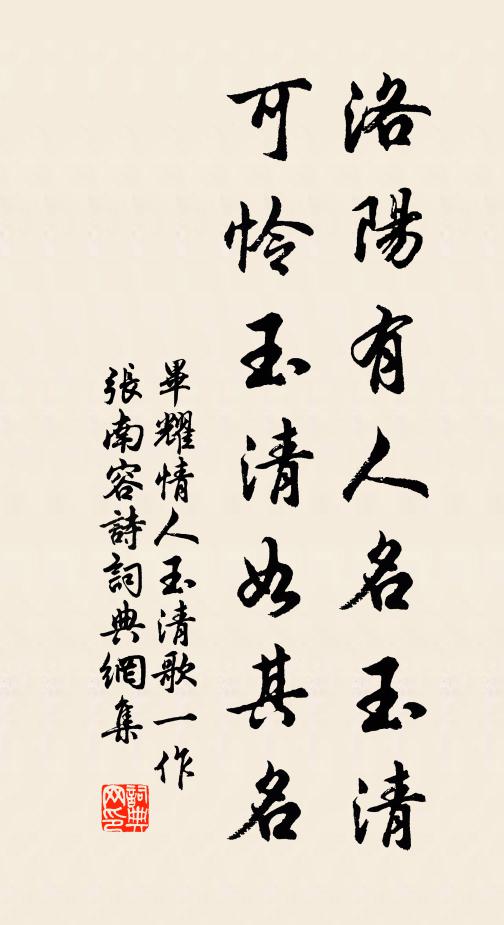 洛陽有人名玉清
可憐玉清如其名
畢耀情人玉清歌一作
張南容詩詞典網集
詞典網印